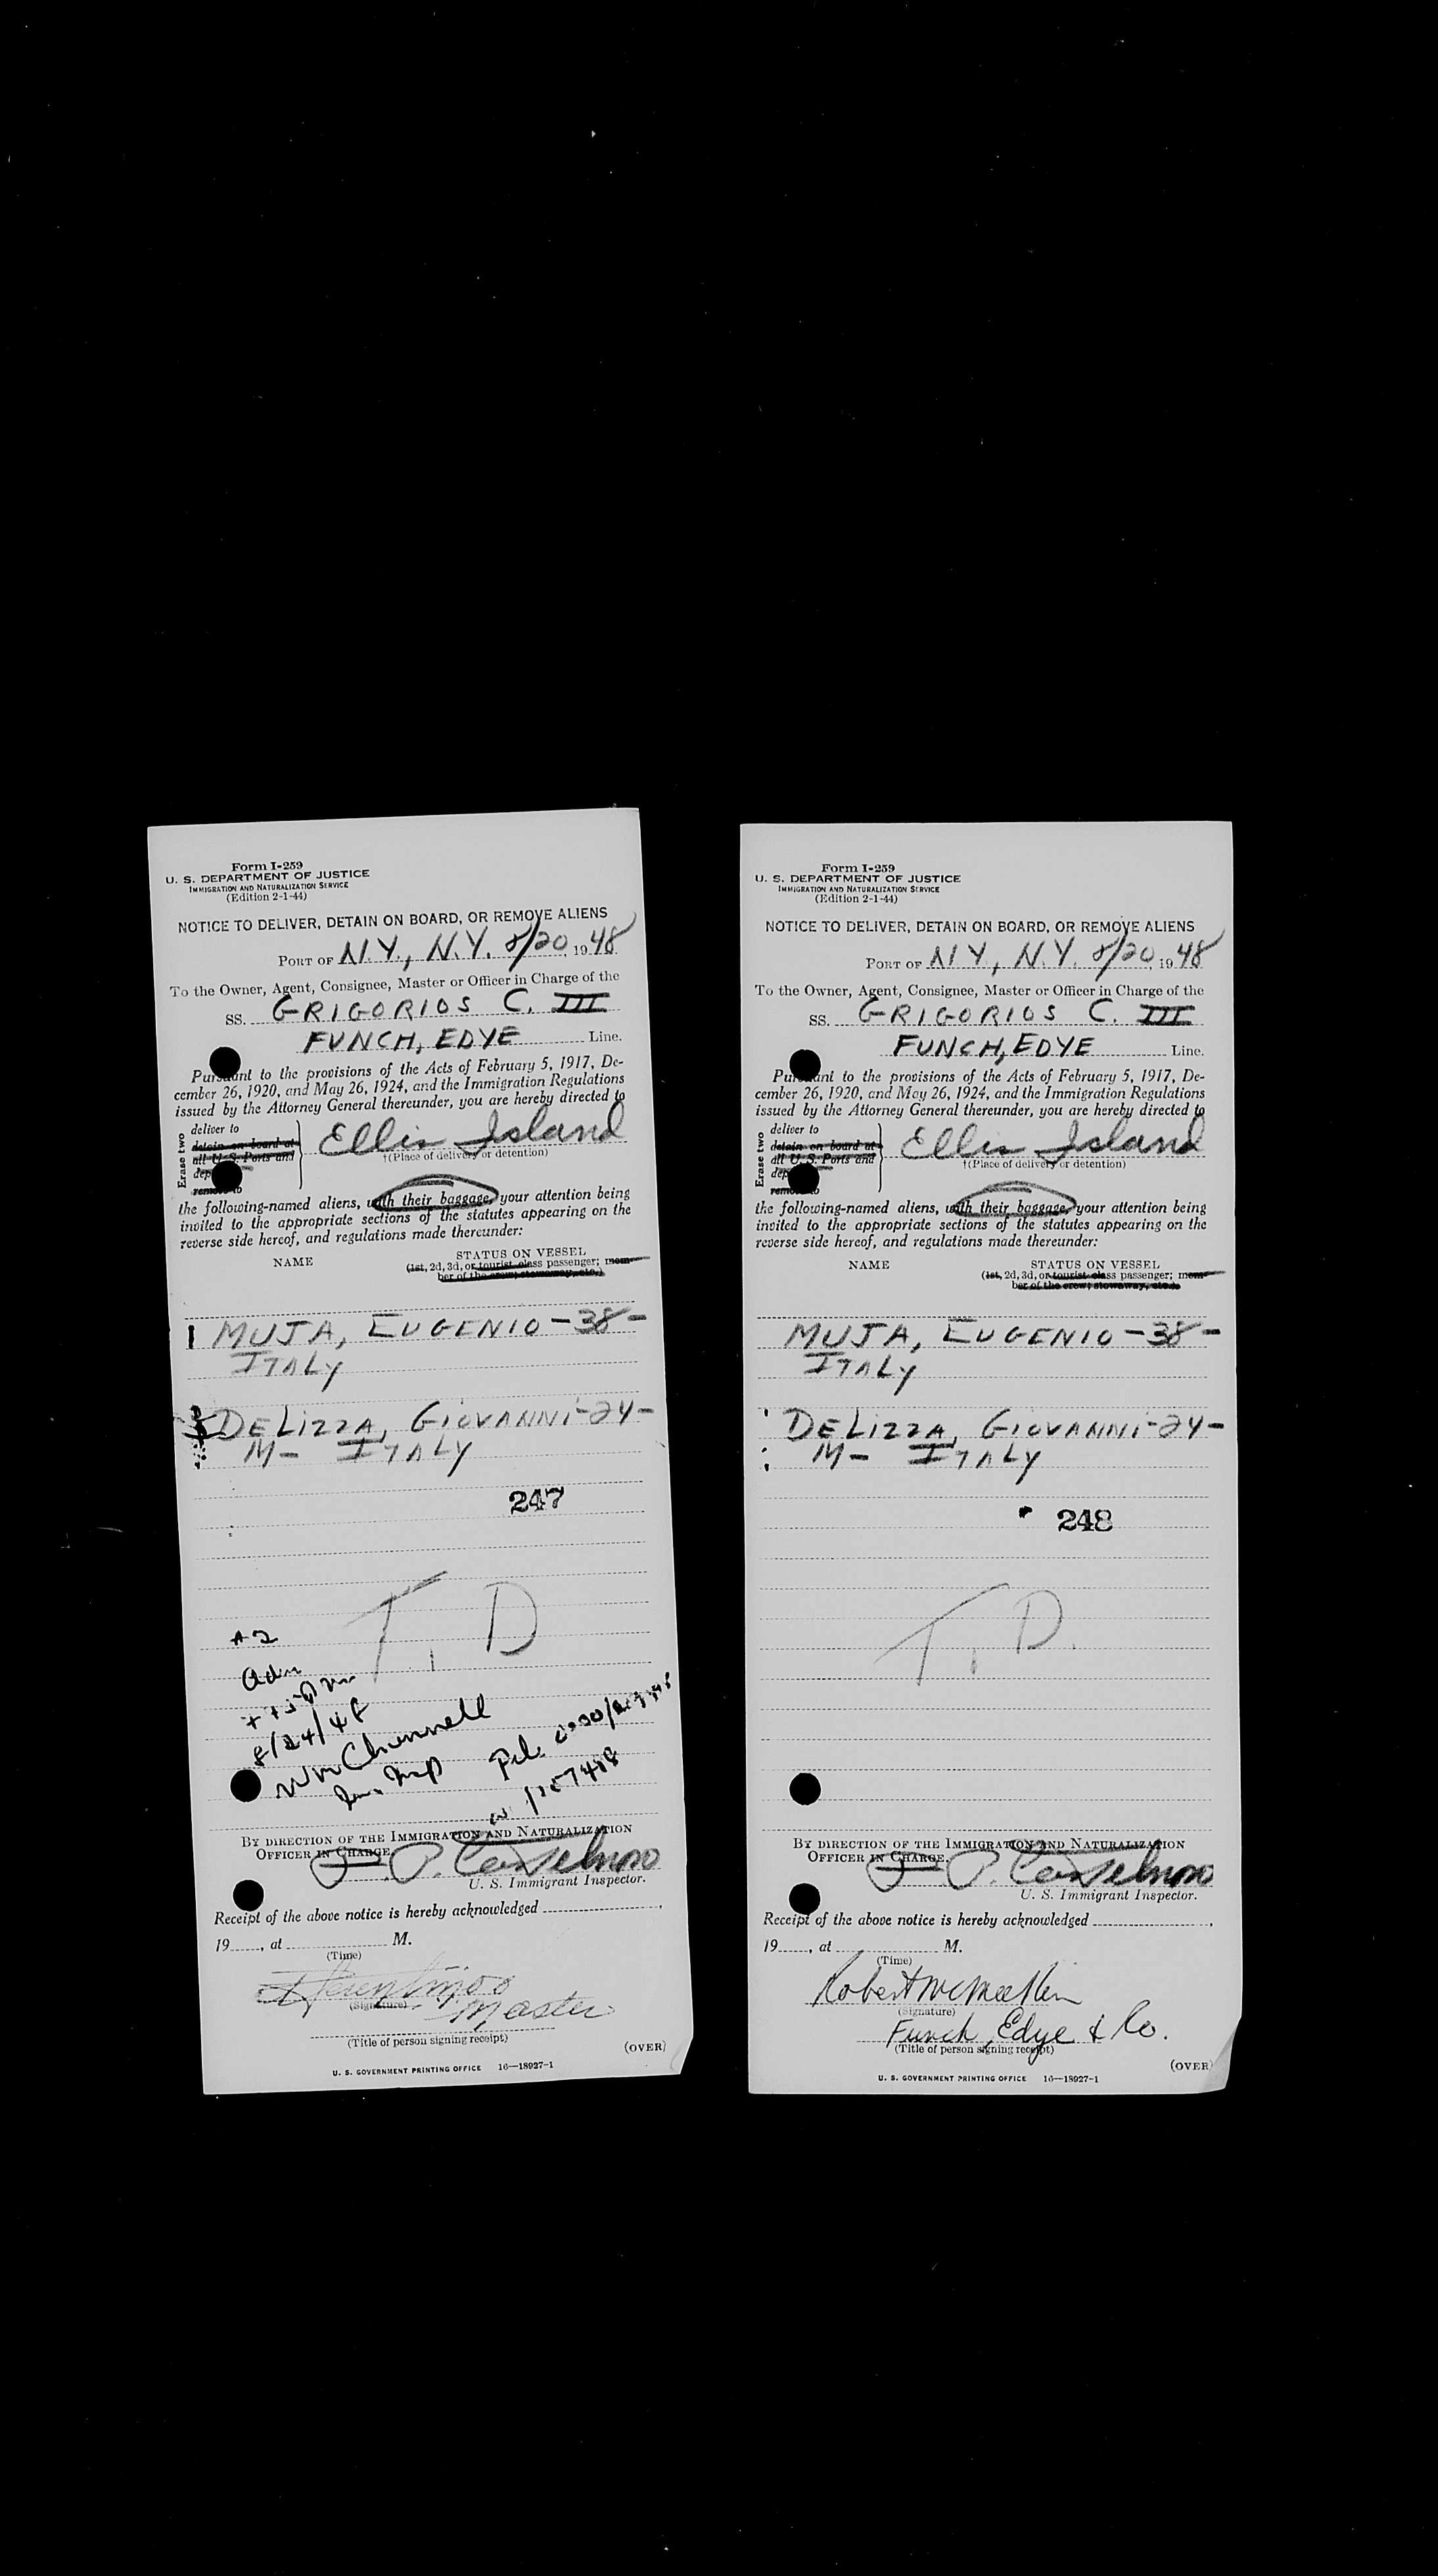 Form I-259
U. S. DEPARTMENT OF JUSTICE
IMMIGRATION AND NATURALIZATION SERVICE
(Edition 2-1-44)
NOTICE TO DELIVER, DETAIN ON BOARD, OR REMOVE ALIENS
PORT OF N.Y., N.Y. 8/20, 1948
To the Owner, Agent, Consignee, Master or Officer in Charge of the
SS. GRIGORIOS C. III
FUNCH, EDYE Line.
Pursuant to the provisions of the Acts of February 5, 1917, De-
cember 26, 1920, and May 26, 1924, and the Immigration Regulations
issued by the Attorney General thereunder, you are hereby directed to
Erase two
deliver to
detain on board at
all U. S. Ports and
dep
remove to
Ellis Island
†(Place of delivery or detention)
the following-named aliens, with their baggage, your attention being
invited to the appropriate sections of the statutes appearing on the
reverse side hereof, and regulations made thereunder:
NAME STATUS ON VESSEL
(1st, 2d, 3d, or tourist class passenger; mem-
ber of the crew; stowaway, etc.)
1 MUJA, EUGENIO-38-
ITALY
DELIZZA, GIOVANNI-24-
M- ITALY
247
T. D
#2
Adm
8/24/48
By DIRECTION OF THE IMMIGRATION AND NATURALIZATION
OFFICER IN CHARGE.
U. S. Immigrant Inspector.
Receipt of the above notice is hereby acknowledged
19, at M.
(Time)
(Signature) Master
(Title of person signing receipt)
(OVER)
U. S. GOVERNMENT PRINTING OFFICE 16—18927-1
Form I-259
U. S. DEPARTMENT OF JUSTICE
IMMIGRATION AND NATURALIZATION SERVICE
(Edition 2-1-44)
NOTICE TO DELIVER, DETAIN ON BOARD, OR REMOVE ALIENS
PORT OF N Y, N.Y. 8/20, 1948
To the Owner, Agent, Consignee, Master or Officer in Charge of the
SS. GRIGORIOS C. III
FUNCH, EDYE Line.
Pursuant to the provisions of the Acts of February 5, 1917, De-
cember 26, 1920, and May 26, 1924, and the Immigration Regulations
issued by the Attorney General thereunder, you are hereby directed to
Erase two
deliver to
detain on board at
all U. S. Ports and
dep
remove to
Ellis Island
†(Place of delivery or detention)
the following-named aliens, with their baggage, your attention being
invited to the appropriate sections of the statutes appearing on the
reverse side hereof, and regulations made thereunder:
NAME STATUS ON VESSEL
(1st, 2d, 3d, or tourist class passenger; mem-
ber of the crew; stowaway, etc.)
MUJA, EUGENIO-38-
ITALY
DELIZZA, GIOVANNI-24-
M- ITALY
248
T. D.
By DIRECTION OF THE IMMIGRATION AND NATURALIZATION
OFFICER IN CHARGE.
U. S. Immigrant Inspector.
Receipt of the above notice is hereby acknowledged
19, at M.
(Time)
Robert
(Signature)
Funch, Edye & Co.
(Title of person signing receipt)
(OVER)
U. S. GOVERNMENT PRINTING OFFICE 16—18927-1